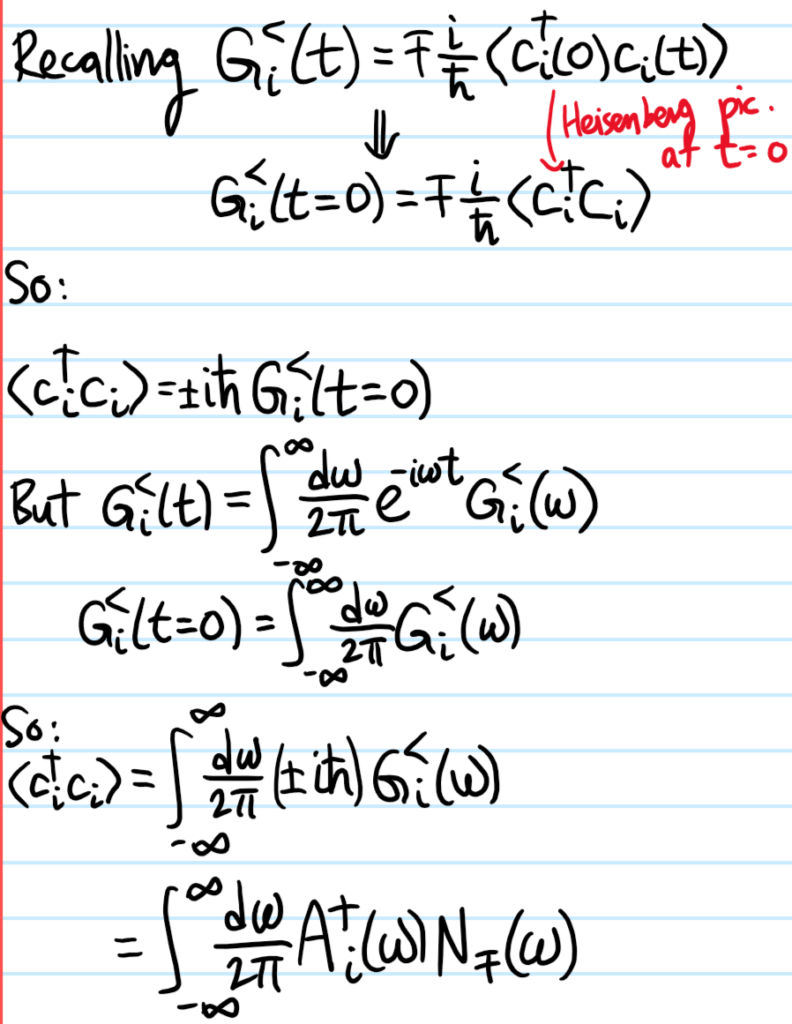 Recalling G_i^<(t) = ∓ i/ħ ⟨c_i^†(0) c_i(t)⟩
Heisenberg pic.
at t=0
⇓
G_i^<(t=0) = ∓ i/ħ ⟨c_i^† c_i⟩
So:
⟨c_i^† c_i⟩ = ±iħ G_i^<(t=0)
But G_i^<(t) = ∫_{-∞}^{∞} dω/2π e^{-iωt} G_i^<(ω)
G_i^<(t=0) = ∫_{-∞}^{∞} dω/2π G_i^<(ω)
So:
⟨c_i^† c_i⟩ = ∫_{-∞}^{∞} dω/2π (±iħ) G_i^<(ω)
= ∫_{-∞}^{∞} dω/2π A_i^†(ω) N_∓(ω)